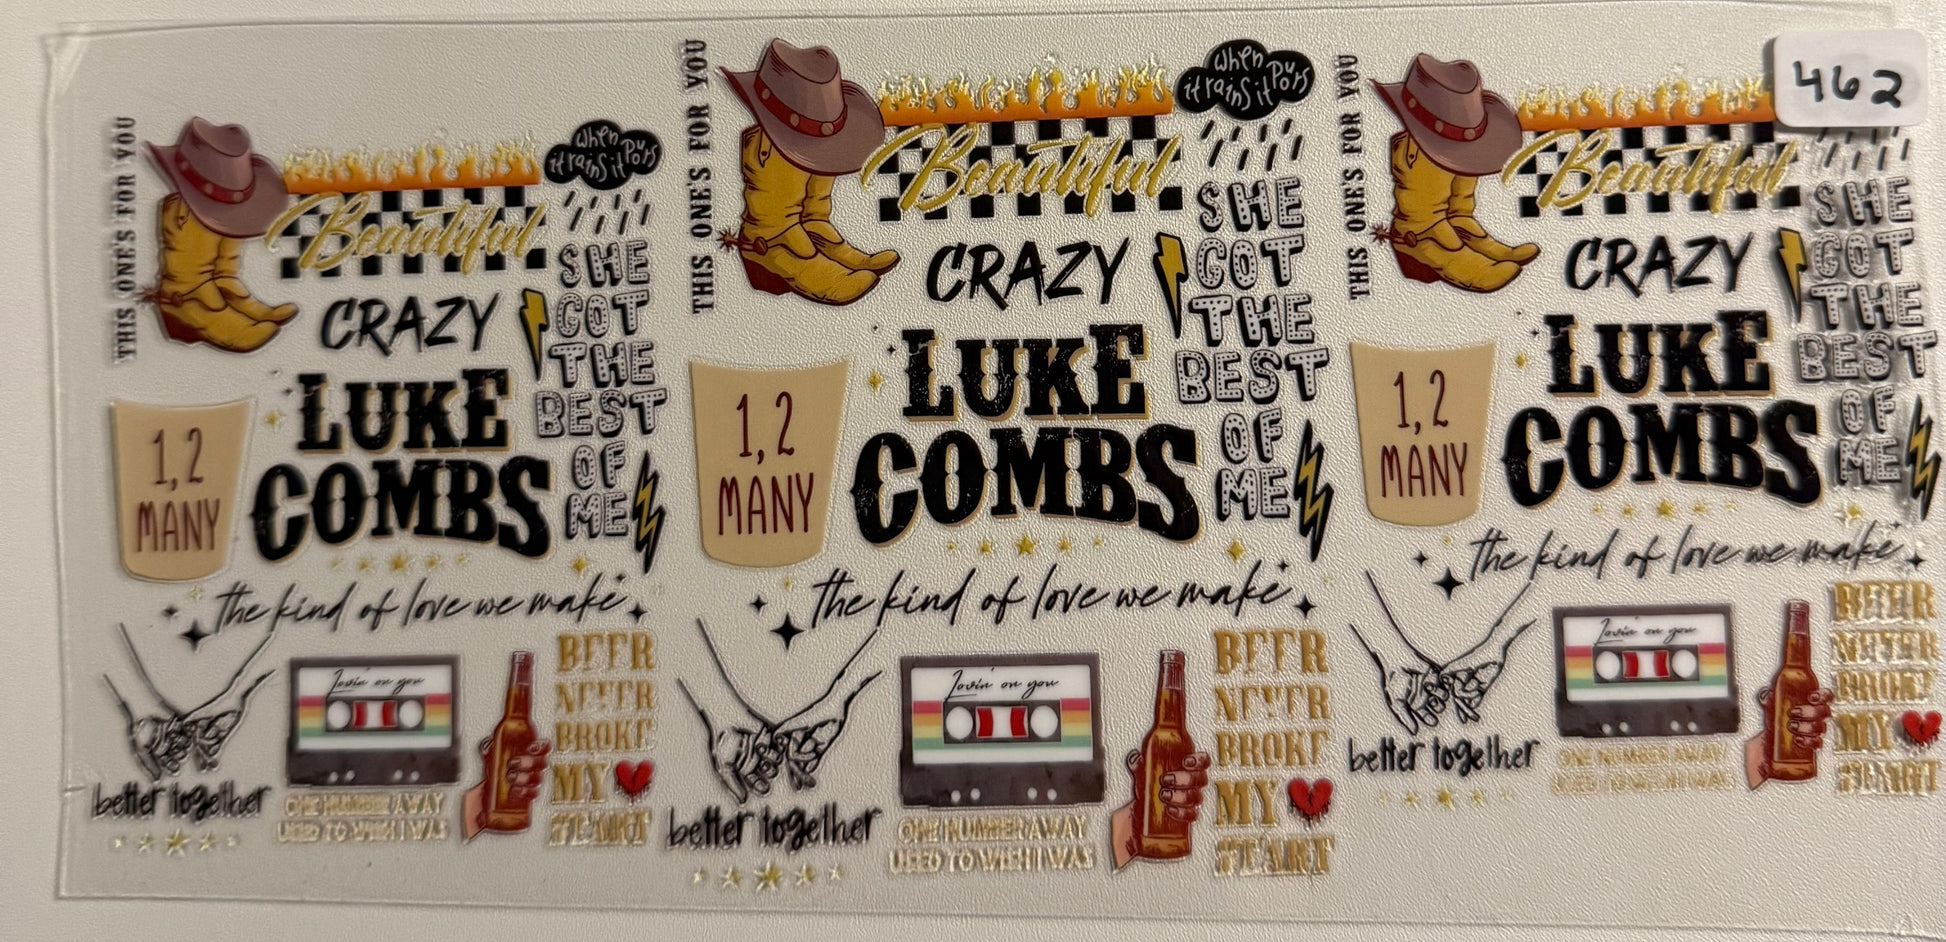 THIS ONE'S FOR YOU
Beautiful
when
it rains it pours
CRAZY
SHE
GOT
THE
BEST
OF
ME
LUKE
COMBS
1, 2
MANY
the kind of love we make
better together
Lovin' on you
ONE NUMBER AWAY
USED TO WISH I WAS
BEER
NEVER
BROKE
MY
HEART
THIS ONE'S FOR YOU
Beautiful
when
it rains it pours
CRAZY
SHE
GOT
THE
BEST
OF
ME
LUKE
COMBS
1, 2
MANY
the kind of love we make
better together
Lovin' on you
ONE NUMBER AWAY
USED TO WISH I WAS
BEER
NEVER
BROKE
MY
HEART
462
THIS ONE'S FOR YOU
Beautiful
CRAZY
SHE
GOT
THE
BEST
OF
ME
LUKE
COMBS
1, 2
MANY
the kind of love we make
better together
Lovin' on you
ONE NUMBER AWAY
USED TO WISH I WAS
BEER
NEVER
BROKE
MY
HEART